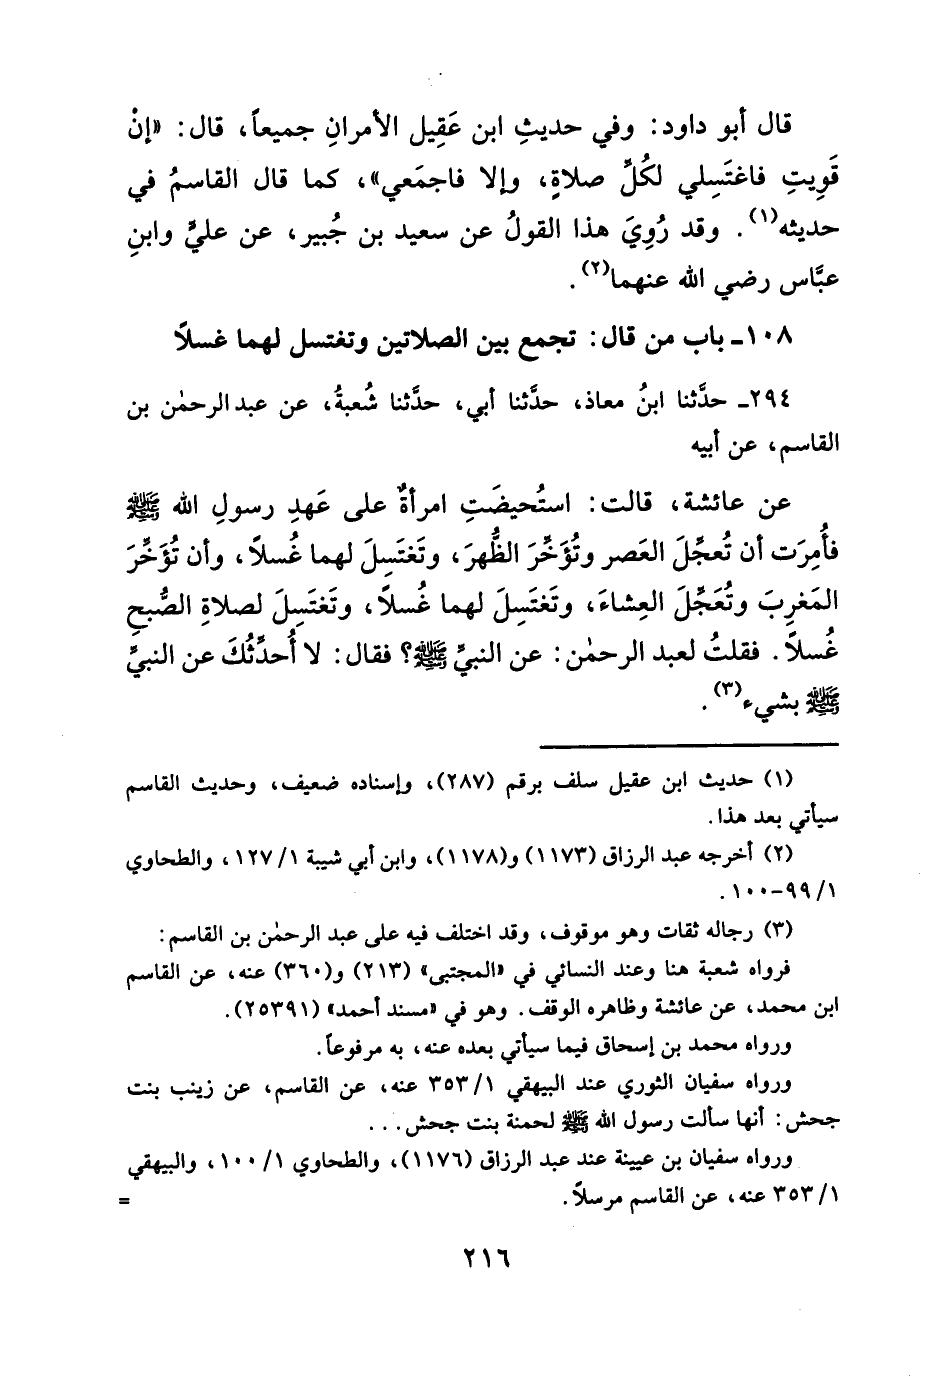 قال أبو داود: وفي حديثِ ابن عَقِيل الأمرانِ جميعاً، قال: «إنْ
قَوِيتِ فاغتَسِلي لكُلِّ صلاةٍ، وإلا فاجمَعي»، كما قال القاسمُ في
حديثه(١). وقد رُوِيَ هذا القولُ عن سعيد بن جُبير، عن عليٍّ وابنِ
عبَّاس رضي الله عنهما(٢).
١٠٨ـ باب من قال: تجمع بين الصلاتين وتغتسل لهما غسلاً
٢٩٤ـ حدَّثنا ابنُ معاذ، حدَّثنا أبي، حدَّثنا شُعبةُ، عن عبد الرحمٰن بن
القاسم، عن أبيه
عن عائشة، قالت: استُحيضَتِ امرأةٌ على عَهدِ رسولِ الله ﷺ
فأُمِرَت أن تُعجِّلَ العَصر وتُؤَخِّرَ الظُّهرَ، وتَغتَسِلَ لهما غُسلاً، وأن تُؤَخِّرَ
المَغرِبَ وتُعَجِّلَ العِشاءَ، وتَغتَسِلَ لهما غُسلاً، وتَغتَسِلَ لصلاةِ الصُّبحِ
غُسلاً. فقلتُ لعبد الرحمٰن: عن النبيِّ ﷺ؟ فقال: لا أُحدِّثُكَ عن النبيِّ
ﷺ بشيء(٣).
(١) حديث ابن عقيل سلف برقم (٢٨٧)، وإسناده ضعيف، وحديث القاسم
سيأتي بعد هذا.
(٢) أخرجه عبد الرزاق (١١٧٣) و(١١٧٨)، وابن أبي شيبة ١/ ١٢٧، والطحاوي
١/ ٩٩-١٠٠.
(٣) رجاله ثقات وهو موقوف، وقد اختلف فيه على عبد الرحمٰن بن القاسم:
فرواه شعبة هنا وعند النسائي في «المجتبى» (٢١٣) و(٣٦٠) عنه، عن القاسم
ابن محمد، عن عائشة وظاهره الوقف. وهو في «مسند أحمد» (٢٥٣٩١).
ورواه محمد بن إسحاق فيما سيأتي بعده عنه، به مرفوعاً.
ورواه سفيان الثوري عند البيهقي ١/ ٣٥٣ عنه، عن القاسم، عن زينب بنت
جحش: أنها سألت رسول الله ﷺ لحمنة بنت جحش...
ورواه سفيان بن عيينة عند عبد الرزاق (١١٧٦)، والطحاوي ١/ ١٠٠، والبيهقي
١/ ٣٥٣ عنه، عن القاسم مرسلاً. =
٢١٦